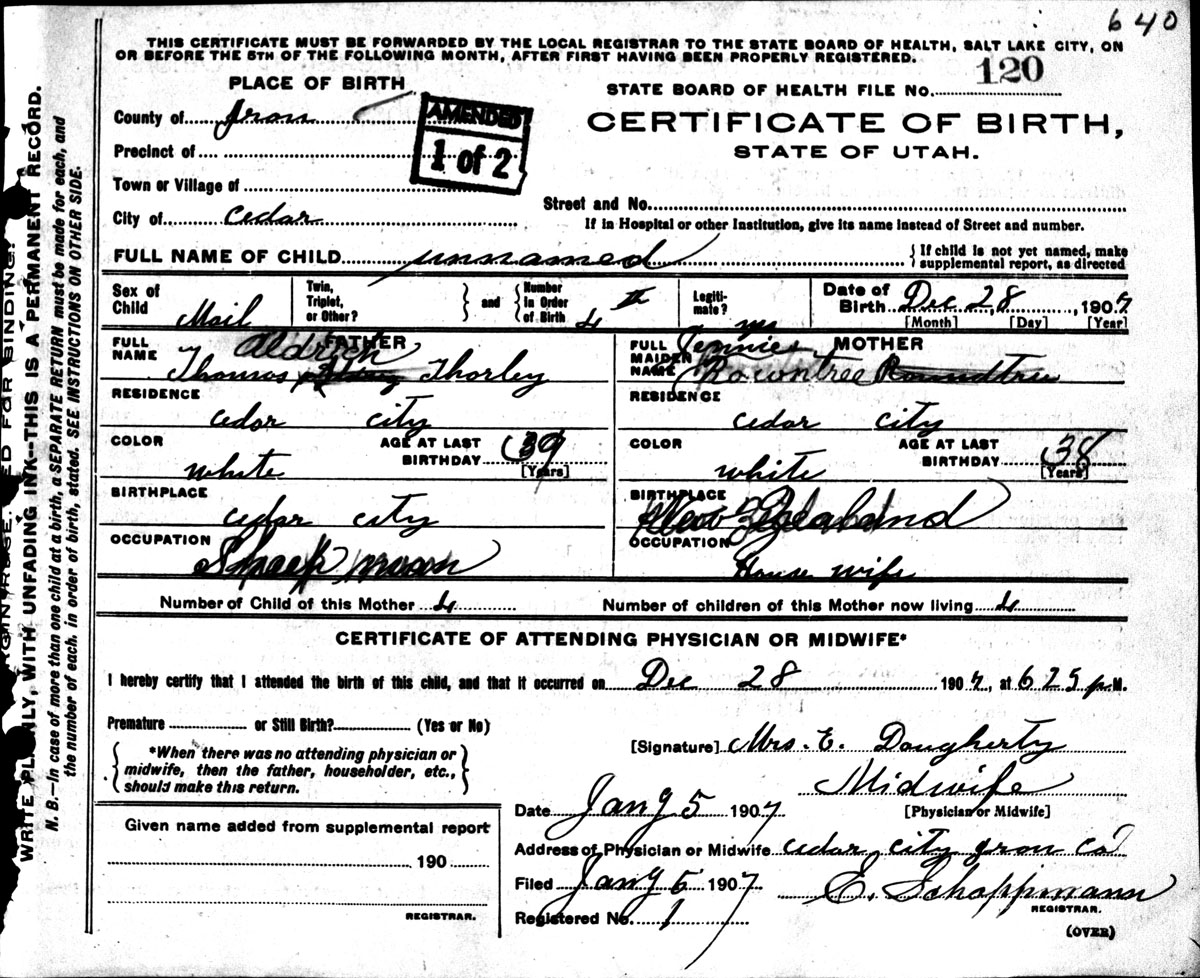 640
THIS CERTIFICATE MUST BE FORWARDED BY THE LOCAL REGISTRAR TO THE STATE BOARD OF HEALTH, SALT LAKE CITY, ON
OR BEFORE THE 5TH OF THE FOLLOWING MONTH, AFTER FIRST HAVING BEEN PROPERLY REGISTERED.
120
PLACE OF BIRTH
STATE BOARD OF HEALTH FILE No.
County of Iron
AMENDED
1 of 2
CERTIFICATE OF BIRTH,
STATE OF UTAH.
Precinct of
Town or Village of
Street and No.
City of Cedar
If in Hospital or other Institution, give its name instead of Street and number.
FULL NAME OF CHILD unnamed
{If child is not yet named, make
supplemental report, as directed
Sex of Child Mail
Twin, Triplet, or Other?
} and {
Number in Order of Birth 4 th
Legiti-mate? yes
Date of Birth Dec 28, 1907
[Month] [Day] [Year]
FATHER
FULL NAME Thomas Aldrich Thorley
MOTHER
FULL MAIDEN NAME Jennie Rowntree Roundtree
RESIDENCE
cedar city
RESIDENCE
cedar city
COLOR
white
AGE AT LAST BIRTHDAY 39
[Years]
COLOR
white
AGE AT LAST BIRTHDAY 38
[Years]
BIRTHPLACE
cedar city
BIRTHPLACE
New Zealand
OCCUPATION
Sheep man
OCCUPATION
House wife
Number of Child of this Mother 4
Number of children of this Mother now living 4
CERTIFICATE OF ATTENDING PHYSICIAN OR MIDWIFE*
I hereby certify that I attended the birth of this child, and that it occurred on Dec 28 1907, at 625 p.M.
Premature or Still Birth? (Yes or No)
{*When there was no attending physician or
midwife, then the father, householder, etc.,
should make this return.}
[Signature] Mrs. E. Daugherty
Midwife
[Physician or Midwife]
Date Jany 5 1907
Address of Physician or Midwife cedar city iron co
Filed Jany 5 1907
E. Schoppmann
REGISTRAR.
Registered No. 1
(OVER)
Given name added from supplemental report
190
REGISTRAR.
WRITE PLAINLY, WITH UNFADING INK--THIS IS A PERMANENT RECORD.
N. B.—In case of more than one child at a birth, a SEPARATE RETURN must be made for each, and
the number of each, in order of birth, stated. SEE INSTRUCTIONS ON OTHER SIDE.